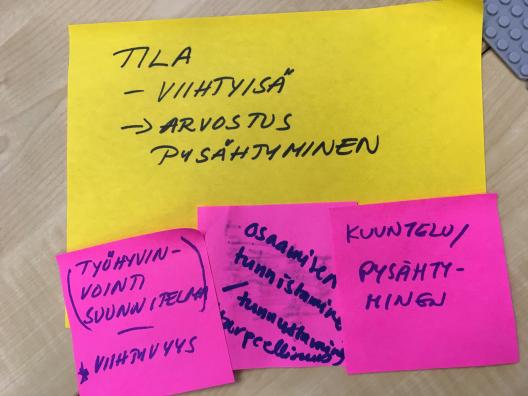 TILA
- VIIHTYISÄ
-> ARVOSTUS
PYSÄHTYMINEN
(TYÖHYVIN-
VOINTI
SUUNNITELMA)
—
* VIIHTYVYYS
osaamisen
tunnistaminen
/ tunnustaminen
tarpeellinuus
KUUNTELU/
PYSÄHTY-
MINEN